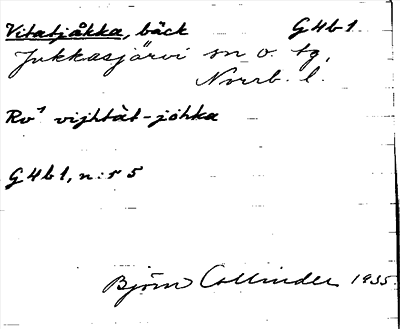 Vitatjåkka, bäck G4b1
Jukkasjärvi sn o. tg,
Norrb. l.
Rv¹ vijhtàt-jóhka
G4b1, n:r 5
Björn Collinder 1935.